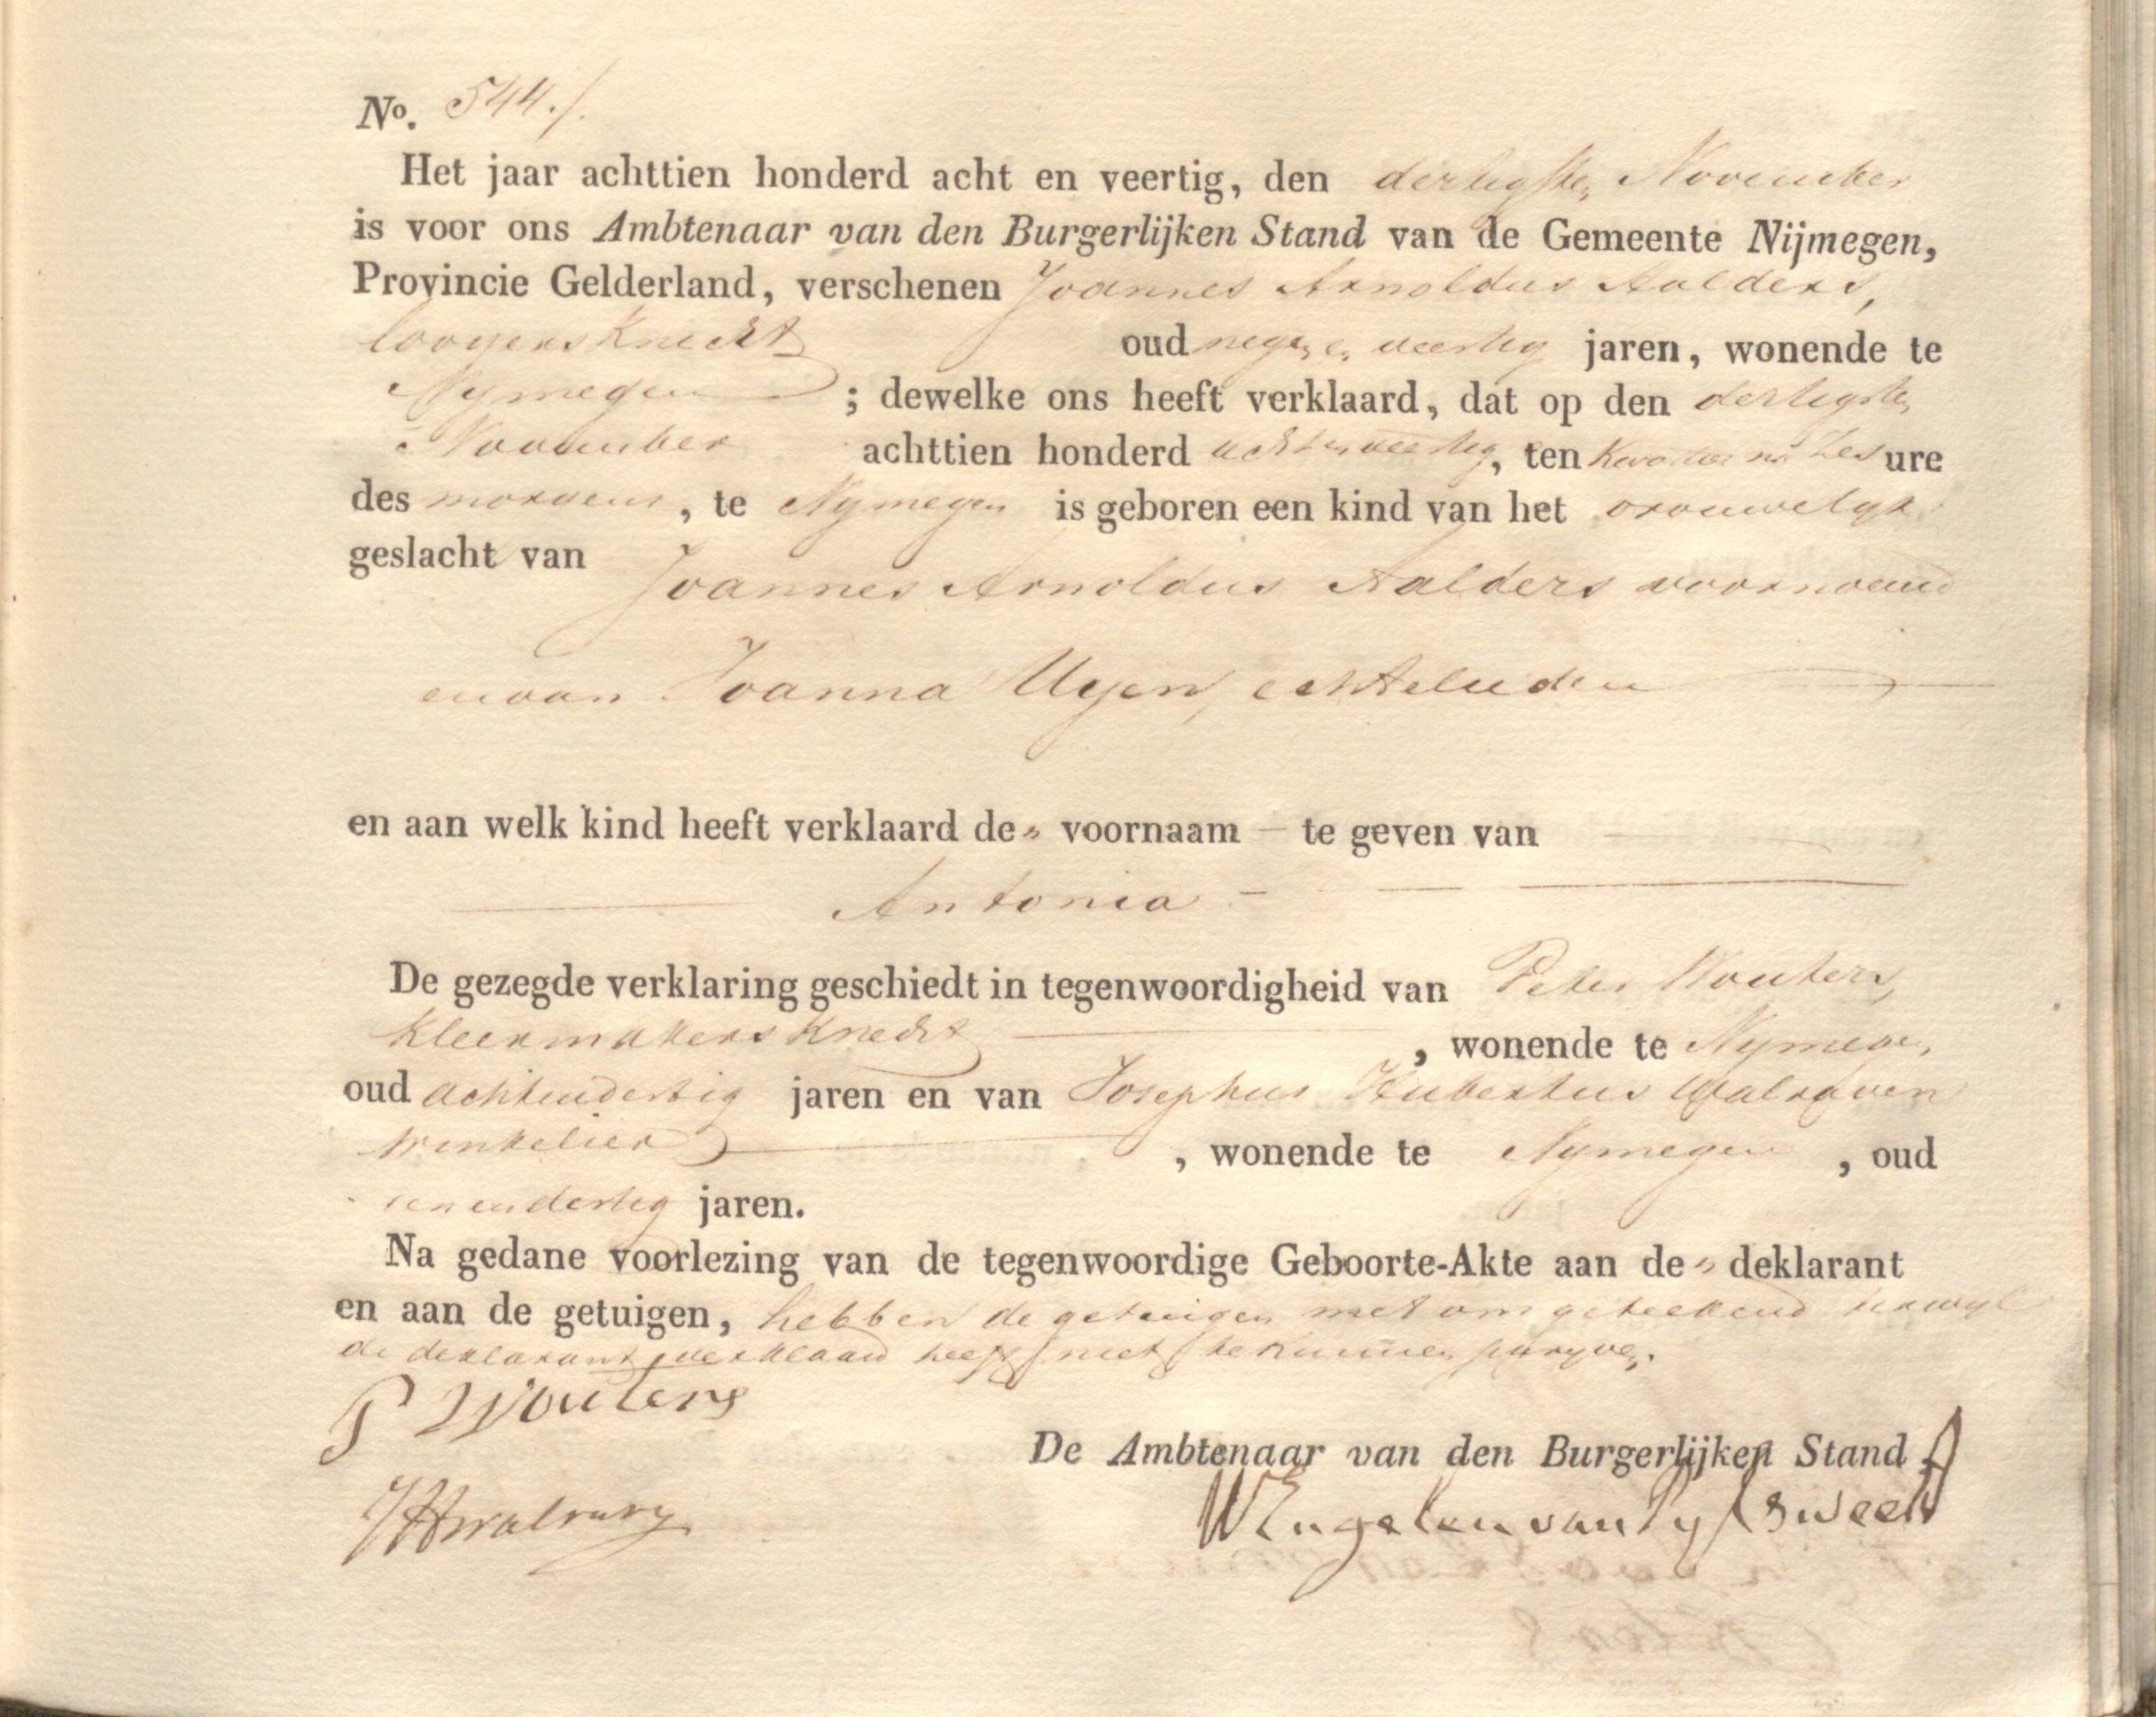 No. 544./.
Het jaar achttien honderd acht en veertig, den dertigsten November
is voor ons Ambtenaar van den Burgerlijken Stand van de Gemeente Nijmegen,
Provincie Gelderland, verschenen Joannes Arnoldus Aalders,
looyersknecht oud negen en veertig jaren, wonende te
Nymegen ; dewelke ons heeft verklaard, dat op den dertigsten
November achttien honderd acht en veertig, ten kwartier na zes ure
des morgens, te Nymegen is geboren een kind van het vrouwelyk
geslacht van Joannes Arnoldus Aalders voornoemd
en van Joanna Uyen, echtelieden
en aan welk kind heeft verklaard de" voornaam — te geven van
Antonia
De gezegde verklaring geschiedt in tegenwoordigheid van Peter Wouters,
kleermakersknecht , wonende te Nymegen,
oud achtendertig jaren en van Josephus Hubertus Walraven
winkelier , wonende te Nymegen , oud
eenendertig jaren.
Na gedane voorlezing van de tegenwoordige Geboorte-Akte aan de" deklarant
en aan de getuigen, hebben de getuigen met ons geteekend terwyl
de deklarant verklaard heeft niet te kunnen schryven.
P Wouters
De Ambtenaar van den Burgerlijken Stand
JHWalraven
Engelen van Pylsweert